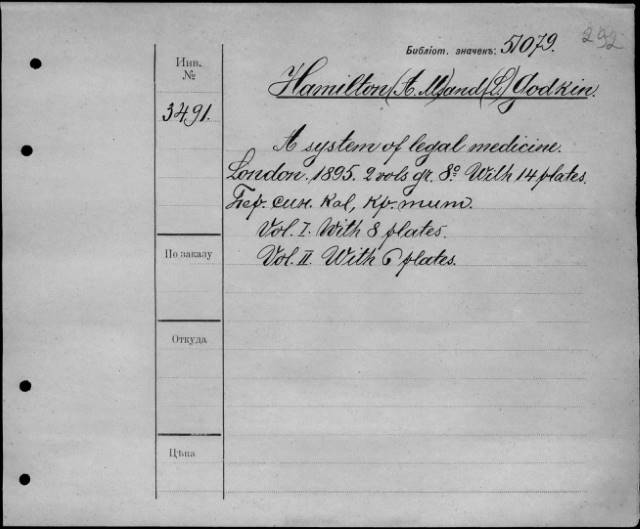 292
Библіот. значекъ: 51079.
Инв. №
Hamilton (A. M.) and (L.) Godkin.
3491.
A system of legal medicine.
London. 1895. 2 vols gr. 8º With 14 plates.
Пер. син. кал, кр. тит.
Vol. I. With 8 plates.
По заказу
Vol. II. With 6 plates.
Откуда
Цѣна